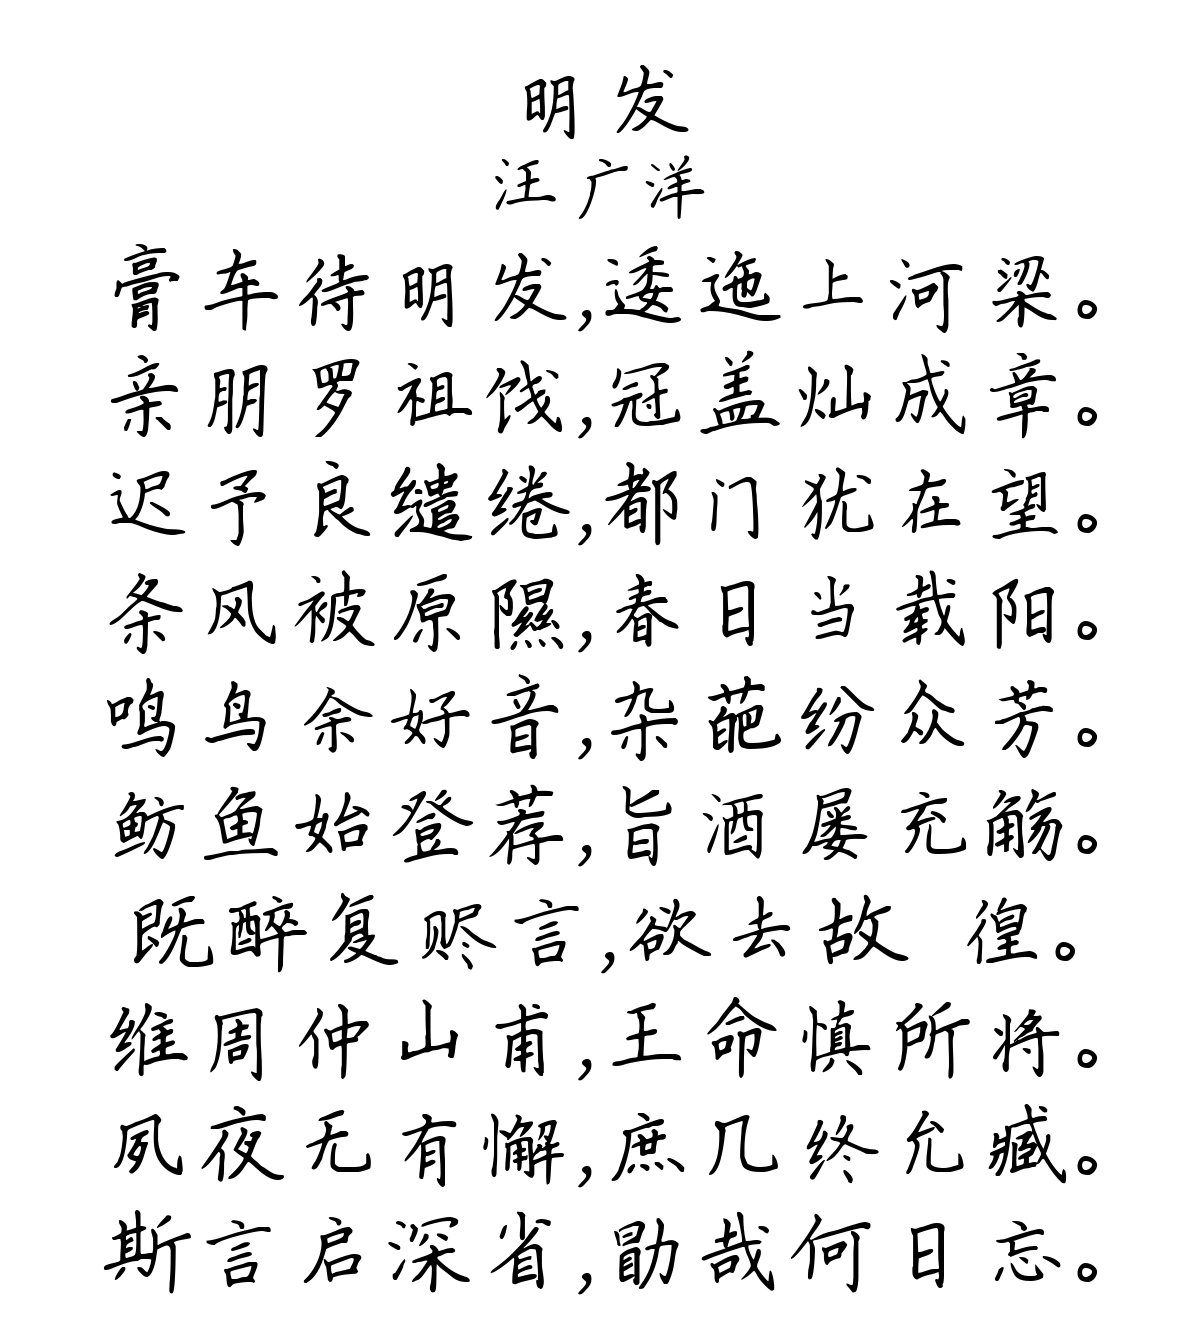 明发
汪广洋
膏车待明发,逶迤上河梁。
亲朋罗祖饯,冠盖灿成章。
迟予良缱绻,都门犹在望。
条风被原隰,春日当载阳。
鸣鸟余好音,杂葩纷众芳。
鲂鱼始登荐,旨酒屡充觞。
既醉复赆言,欲去故 徨。
维周仲山甫,王命慎所将。
夙夜无有懈,庶几终允臧。
斯言启深省,勖哉何日忘。